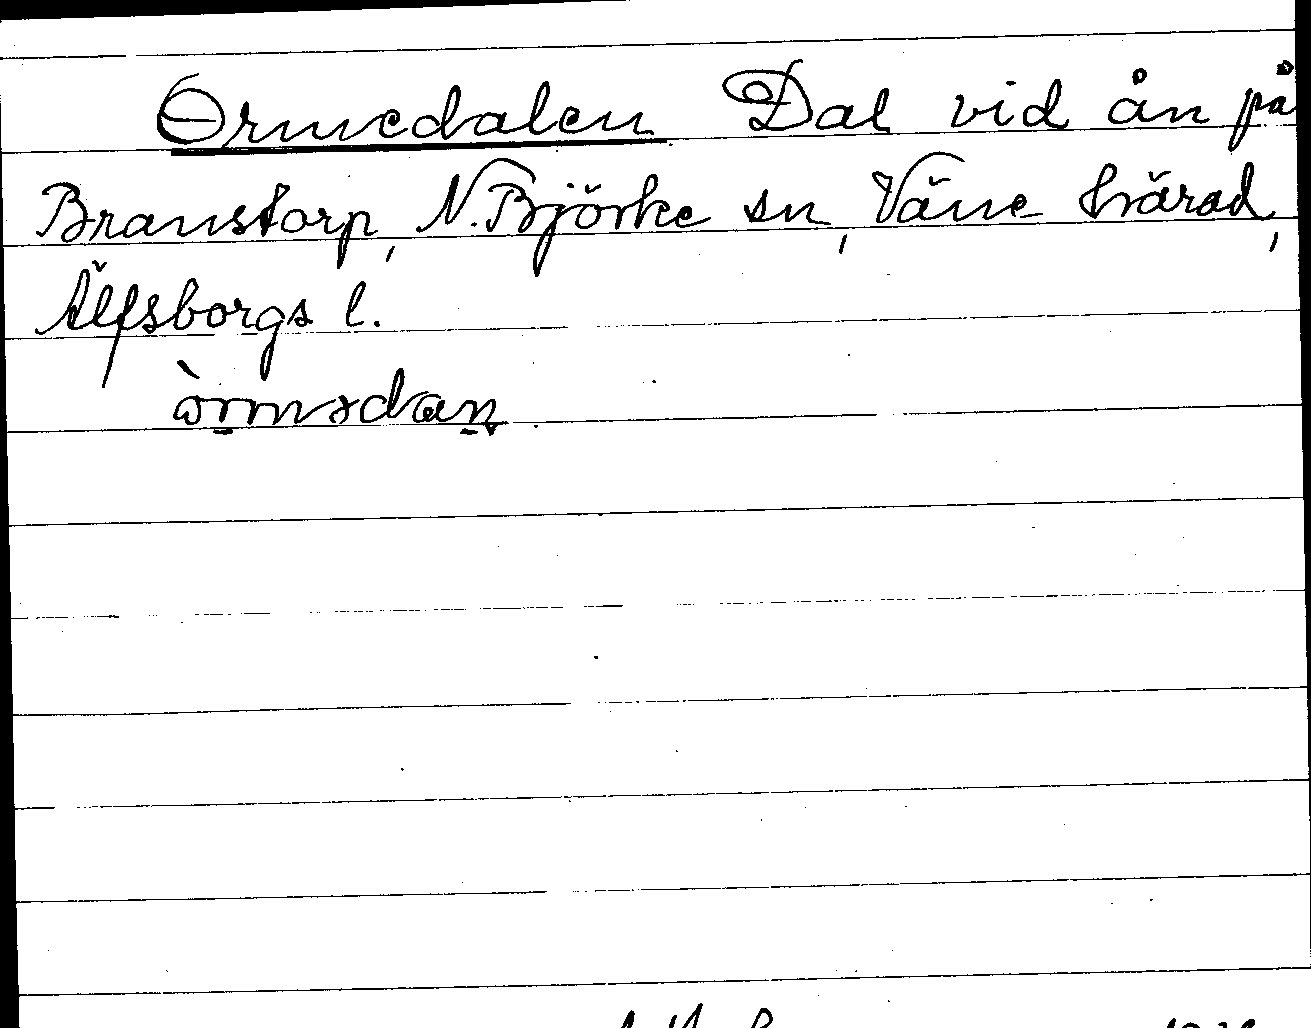 Ormedalen Dal vid ån på
Branstorp, N. Björke sn, Väne härad,
Älfsborgs l.